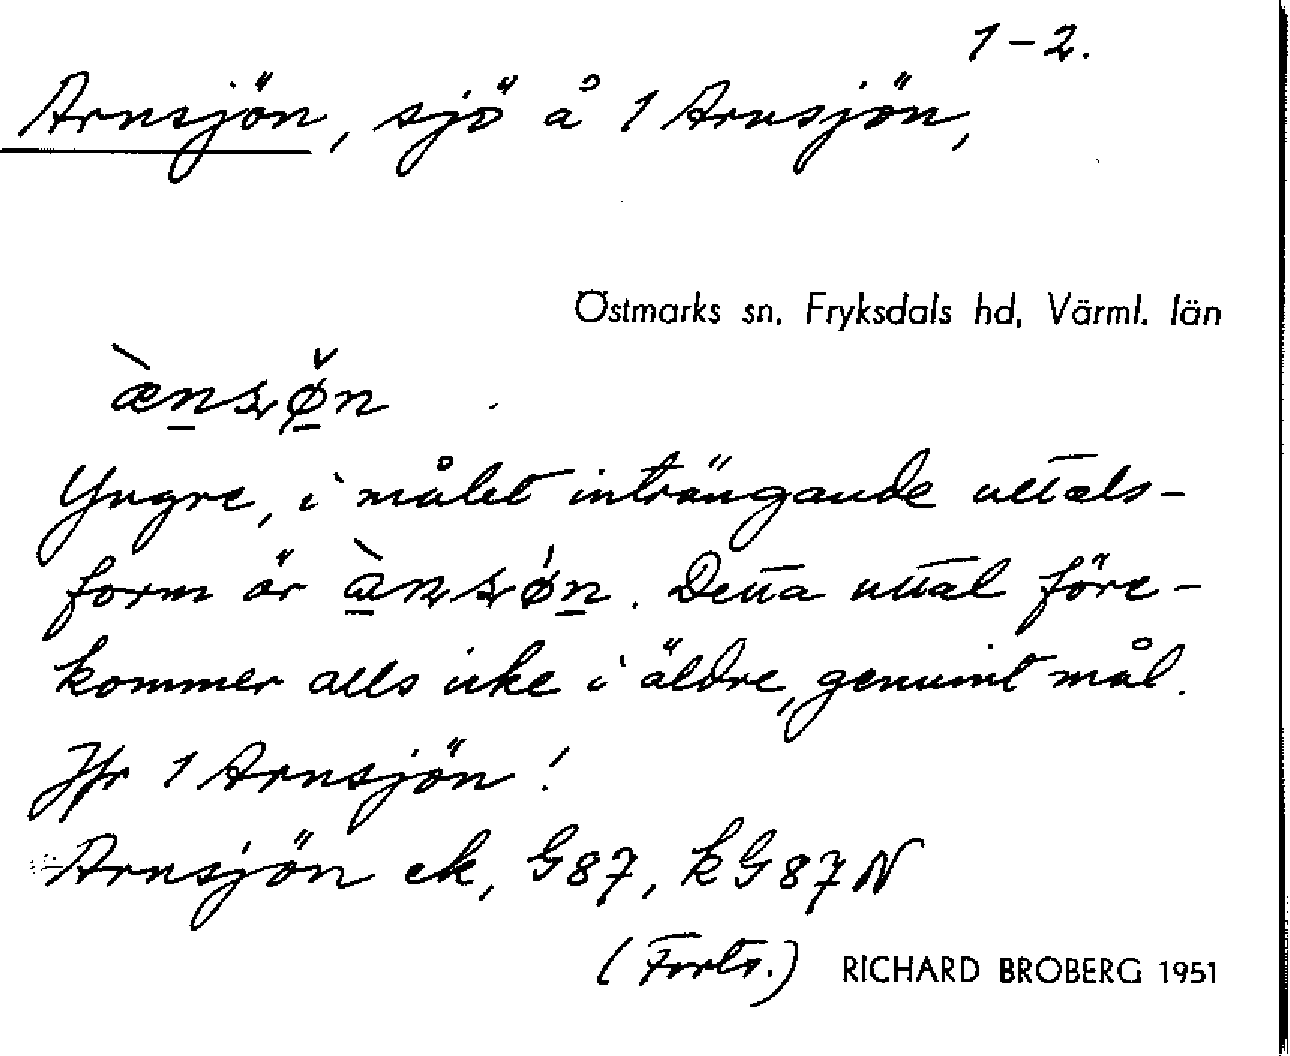 1-2.
Arnsjön, sjö å 1 Arnsjön,
Östmarks sn, Fryksdals hd, Värml. län
Yngre, i målet inträngande uttals-
form är . Detta uttal före-
kommer alls icke i äldre, genuint mål.
Jfr 1 Arnsjön!
Arnsjön ek, G87, kG87N
(Forts.) RICHARD BROBERG 1951